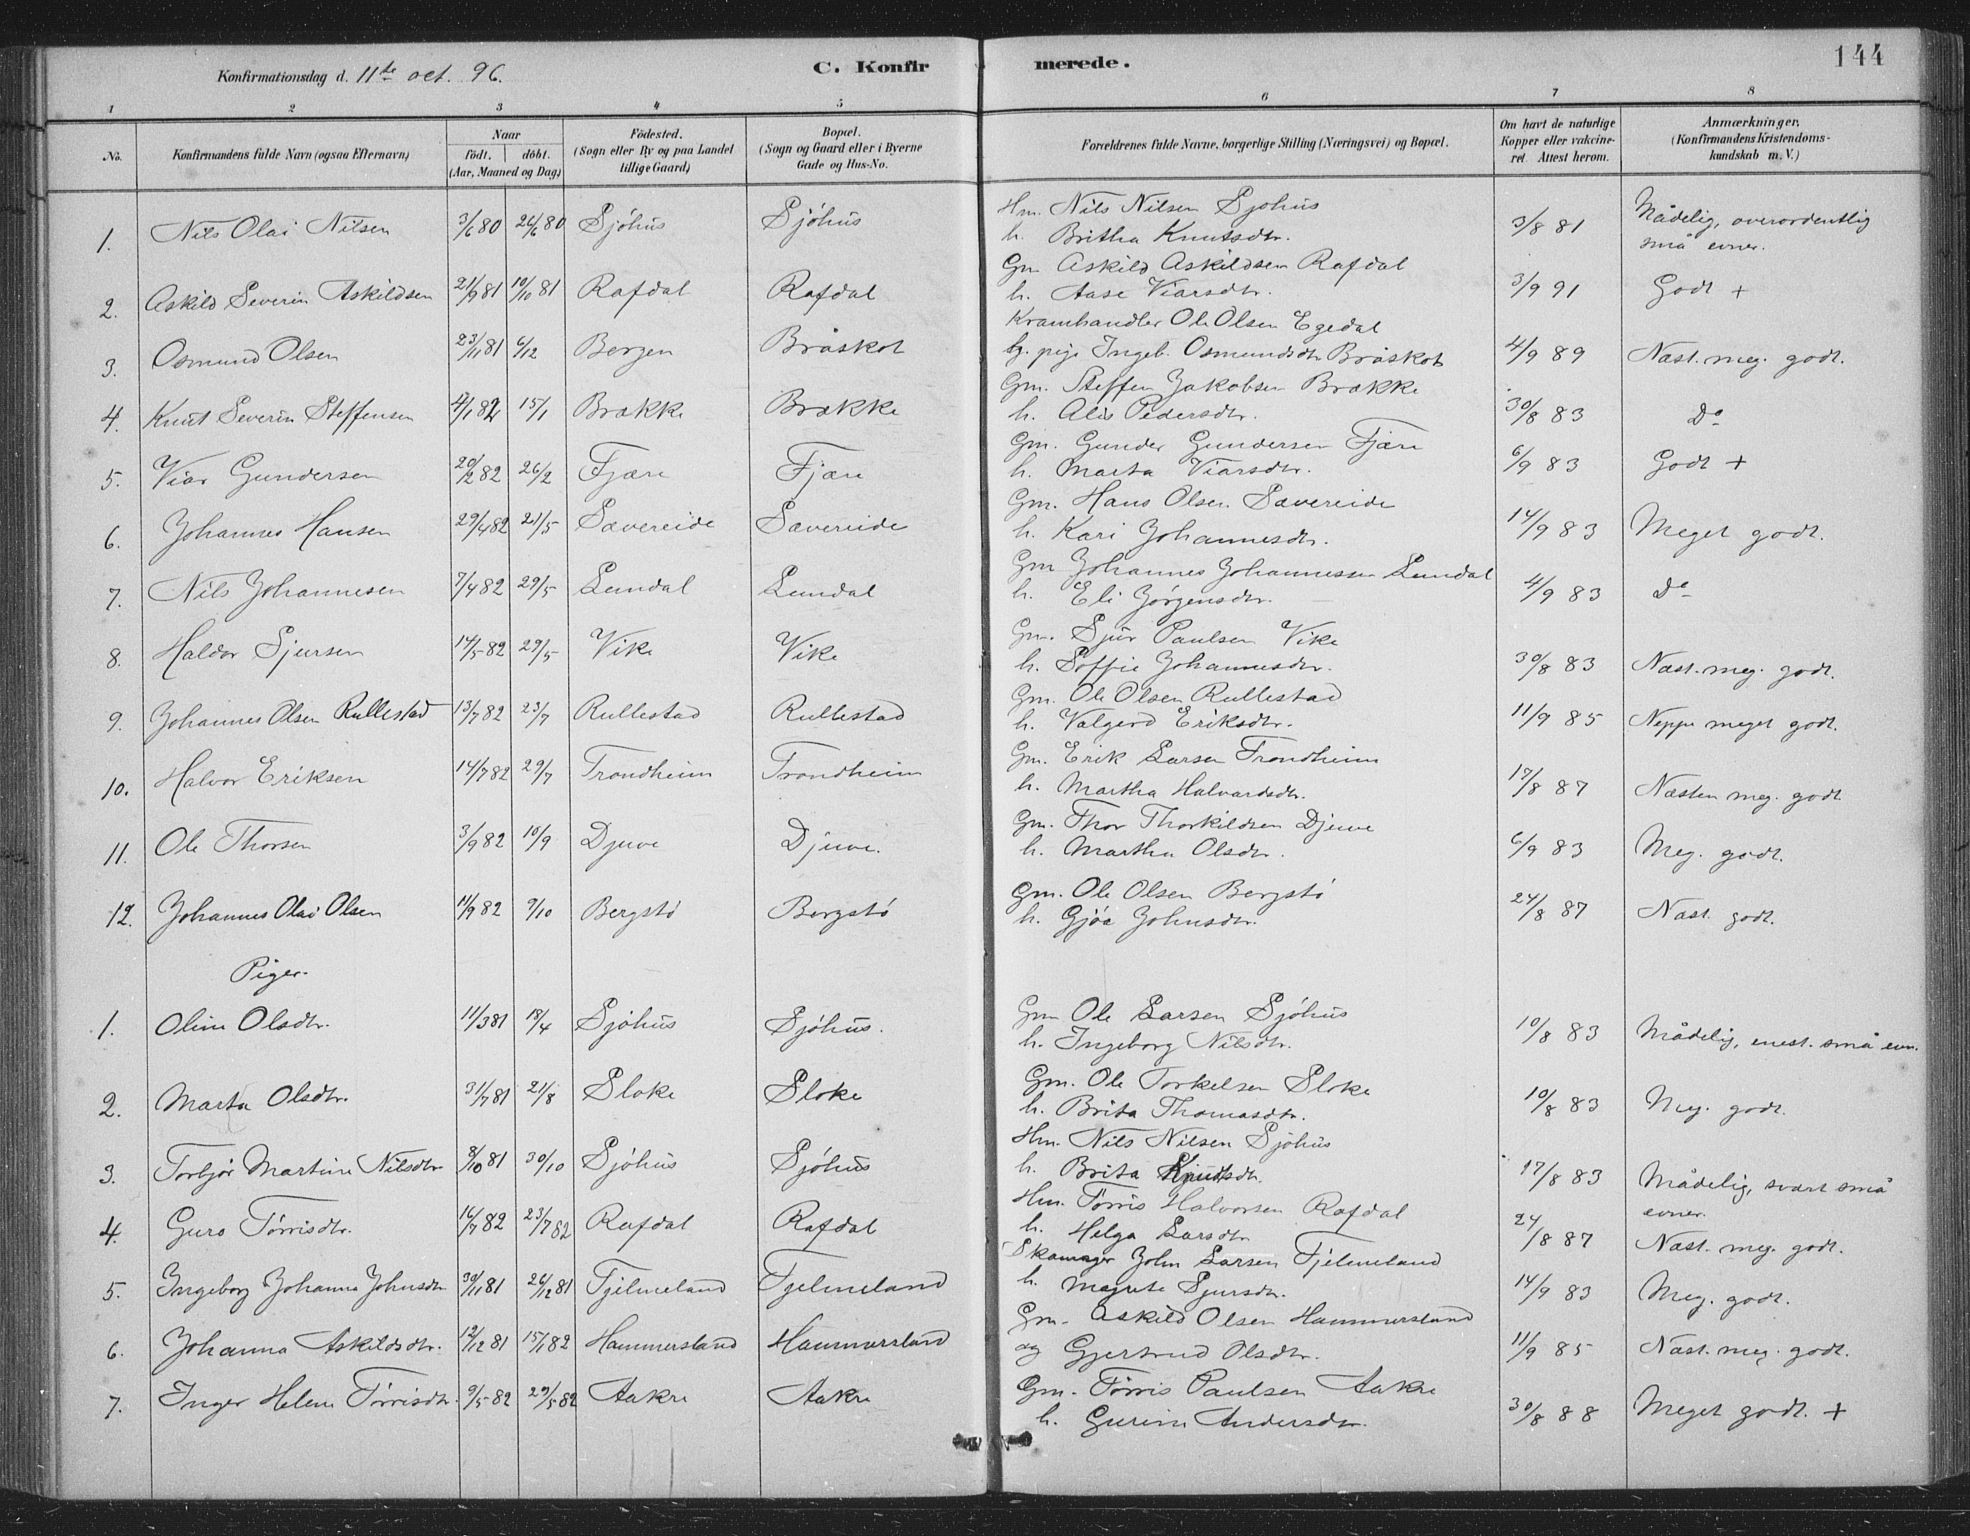 144
Konfirmationsdag d. 11te oct. 96.
C. Konfirmerede.
1 2 3 4 5 6 7 8
No. Konfirmandens fulde Navn (ogsaa Efternavn) Naar födt. döbt. (Aar, Maaned og Dag) Födested. (Sogn eller By og paa Landet tillige Gaard) Bopæl. (Sogn og Gaard eller i Byerne Gade og Hus-No. Forældrenes fulde Navne, borgerlige Stilling (Næringsvei) og Bopæl. Om havt de naturlige Kopper eller vakcineret. Attest herom. Anmærkninger. (Konfirmandens Kristendomskundskab m. V.)
1. Nils Olai Nilsen 3/6 80 26/6 80 Sjöhus Sjöhus Hm. Nils Nilsen Sjöhus 3/8 81 Mådelig, overordentlig
h. Britha Knutsdtr. små evner.
2. Askild Severin Askildsen 21/9 81 10/10 81 Rafdal Rafdal Gm Askild Askildsen Rafdal 3/9 91 Godt +
h. Aase Viarsdtr.
3. Osmund Olsen 23/11 81 6/12 Bergen Bråskot Kramhandler Ole Olsen Egedal 4/9 89 Næst. meg. godt.
pige Ingeb. Osmundsdtr Bråskot
4. Knut Severin Steffensen 4/1 82 15/1 Brække Brække Gm. Steffen Jakobsen Brække 30/8 83 Do
h. Alis Pedersdtr.
5. Viar Gundersen 20/2 82 26/2 Fjære Fjære Gm. Gunder Gundersen Fjære 6/9 83 Godt +
h. Marta Viarsdtr.
6. Johannes Hansen 29/4 82 21/5 Sævereide Sævereide Gm. Hans Olsen Sævereide 14/9 83 Meget godt.
h. Kari Johannesdtr.
7. Nils Johannesen 7/4 82 29/5 Lundal Lundal Gm Johannes Johannessen Lundal 4/9 83 Do
h. Eli Jørgensdtr.
8. Haldor Sjursen 14/5 82 29/5 Vike Vike Gm. Sjur Paulsen Vike 30/8 83 Næst. meg. godt.
h. Soffie Johannesdtr.
9. Johannes Olsen Rullestad 13/7 82 23/7 Rullestad Rullestad Gm. Ole Olsen Rullestad 11/9 85 Neppe meget godt.
h. Valgerd Eriksdtr.
10. Halvor Eriksen 14/7 82 29/7 Trondheim Trondheim Gm. Erik Larsen Trondheim 17/8 87 Næsten meg. godt
h. Martha Halvardsdtr.
11. Ole Thorsen 3/9 82 10/9 Djuve Djuve. Gm. Thor Thorkildsen Djuve 6/9 83 Meg. godt.
h. Martha Olsdtr.
12. Johannes Olai Olsen 11/9 82 9/10 Bergstö Bergstö Gm. Ole Olsen Bergstö 24/8 87 Næst. godt.
h. Gjöa Johnsdtr.
Piger.
1. Oline Olsdtr. 11/3 81 18/4 Sjöhus Sjöhus. Gm Ole Larsen Sjöhus 10/8 83 Mådelig, små evn.
h. Ingeborg Nilsdtr.
2. Marta Olsdtr. 31/7 81 21/8 Sloke Sloke Gm. Ole Torkelsen Sloke 10/8 83 Meg. godt.
h. Brita Thomasdtr.
3. Torbjör Martine Nilsdtr 8/10 81 30/10 Sjöhus Sjöhus Hm. Nils Nilsen Sjöhus 17/8 83 Mådelig, svært små
h. Brita Knutsdtr. evner.
4. Guro Tørrisdtr. 16/7 82 23/7 82 Rafdal Rafdal Hm. Tørris Halvorsen Rafdal 24/8 87 Næst. meg. godt.
h. Helga Larsdtr
5. Ingeborg Johanna Johnsdtr 30/11 81 26/12 81 Fjelmeland Fjelmeland Skomager John Larsen Fjelmeland 14/9 83 Meg. godt.
h. Magrete Sjursdtr.
6. Johanna Askildsdtr. 12/12 81 15/1 82 Hammersland Hammersland Gm. Askild Olsen Hammersland 11/9 85 Næst. meg. godt.
og Gjertrud Olsdtr.
7. Inger Helene Tørrisdtr. 9/5 82 29/5 82 Aakre Aakre Gm. Tørris Paulsen Aakre 30/8 88 Meget godt. +
h. Gurine Andersdtr.